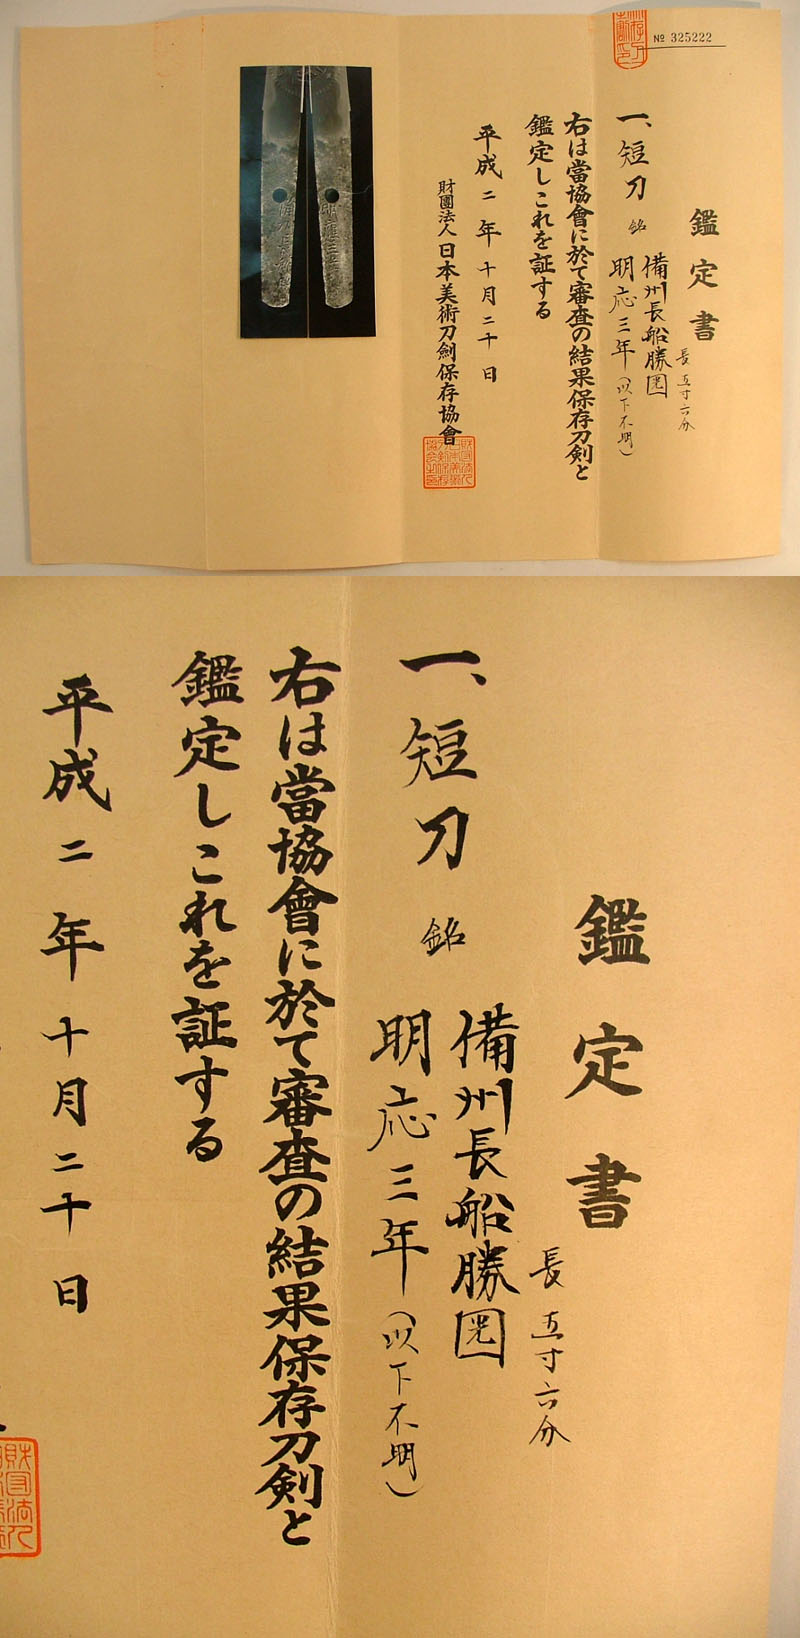 № 325222
鑑定書
長五寸六分
一、短刀 銘 備州長船勝光
明応三年(以下不明)
右は當協會に於て審査の結果保存刀剣と
鑑定しこれを証する
平成二年十月二十日
財團法人日本美術刀劍保存協會
鑑定書
長五寸六分
一、短刀 銘 備州長船勝光
明応三年(以下不明)
右は當協會に於て審査の結果保存刀剣と
鑑定しこれを証する
平成二年十月二十日